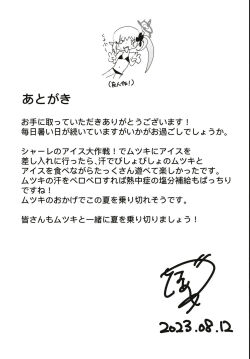 あとがき
お手に取っていただきありがとうございます！
毎日暑い日が続いていますがいかがお過ごしでしょうか。
シャーレのアイス大作戦！でムツキにアイスを
差し入れに行ったら、汗でびしょびしょのムツキと
アイスを食べながらたっくさん遊べて楽しかったです。
ムツキの汗をペロペロすれば熱中症の塩分補給もばっちり
ですね！
ムツキのおかげでこの夏を乗り切れそうです。
皆さんもムツキと一緒に夏を乗り切りましょう！
2023.08.12